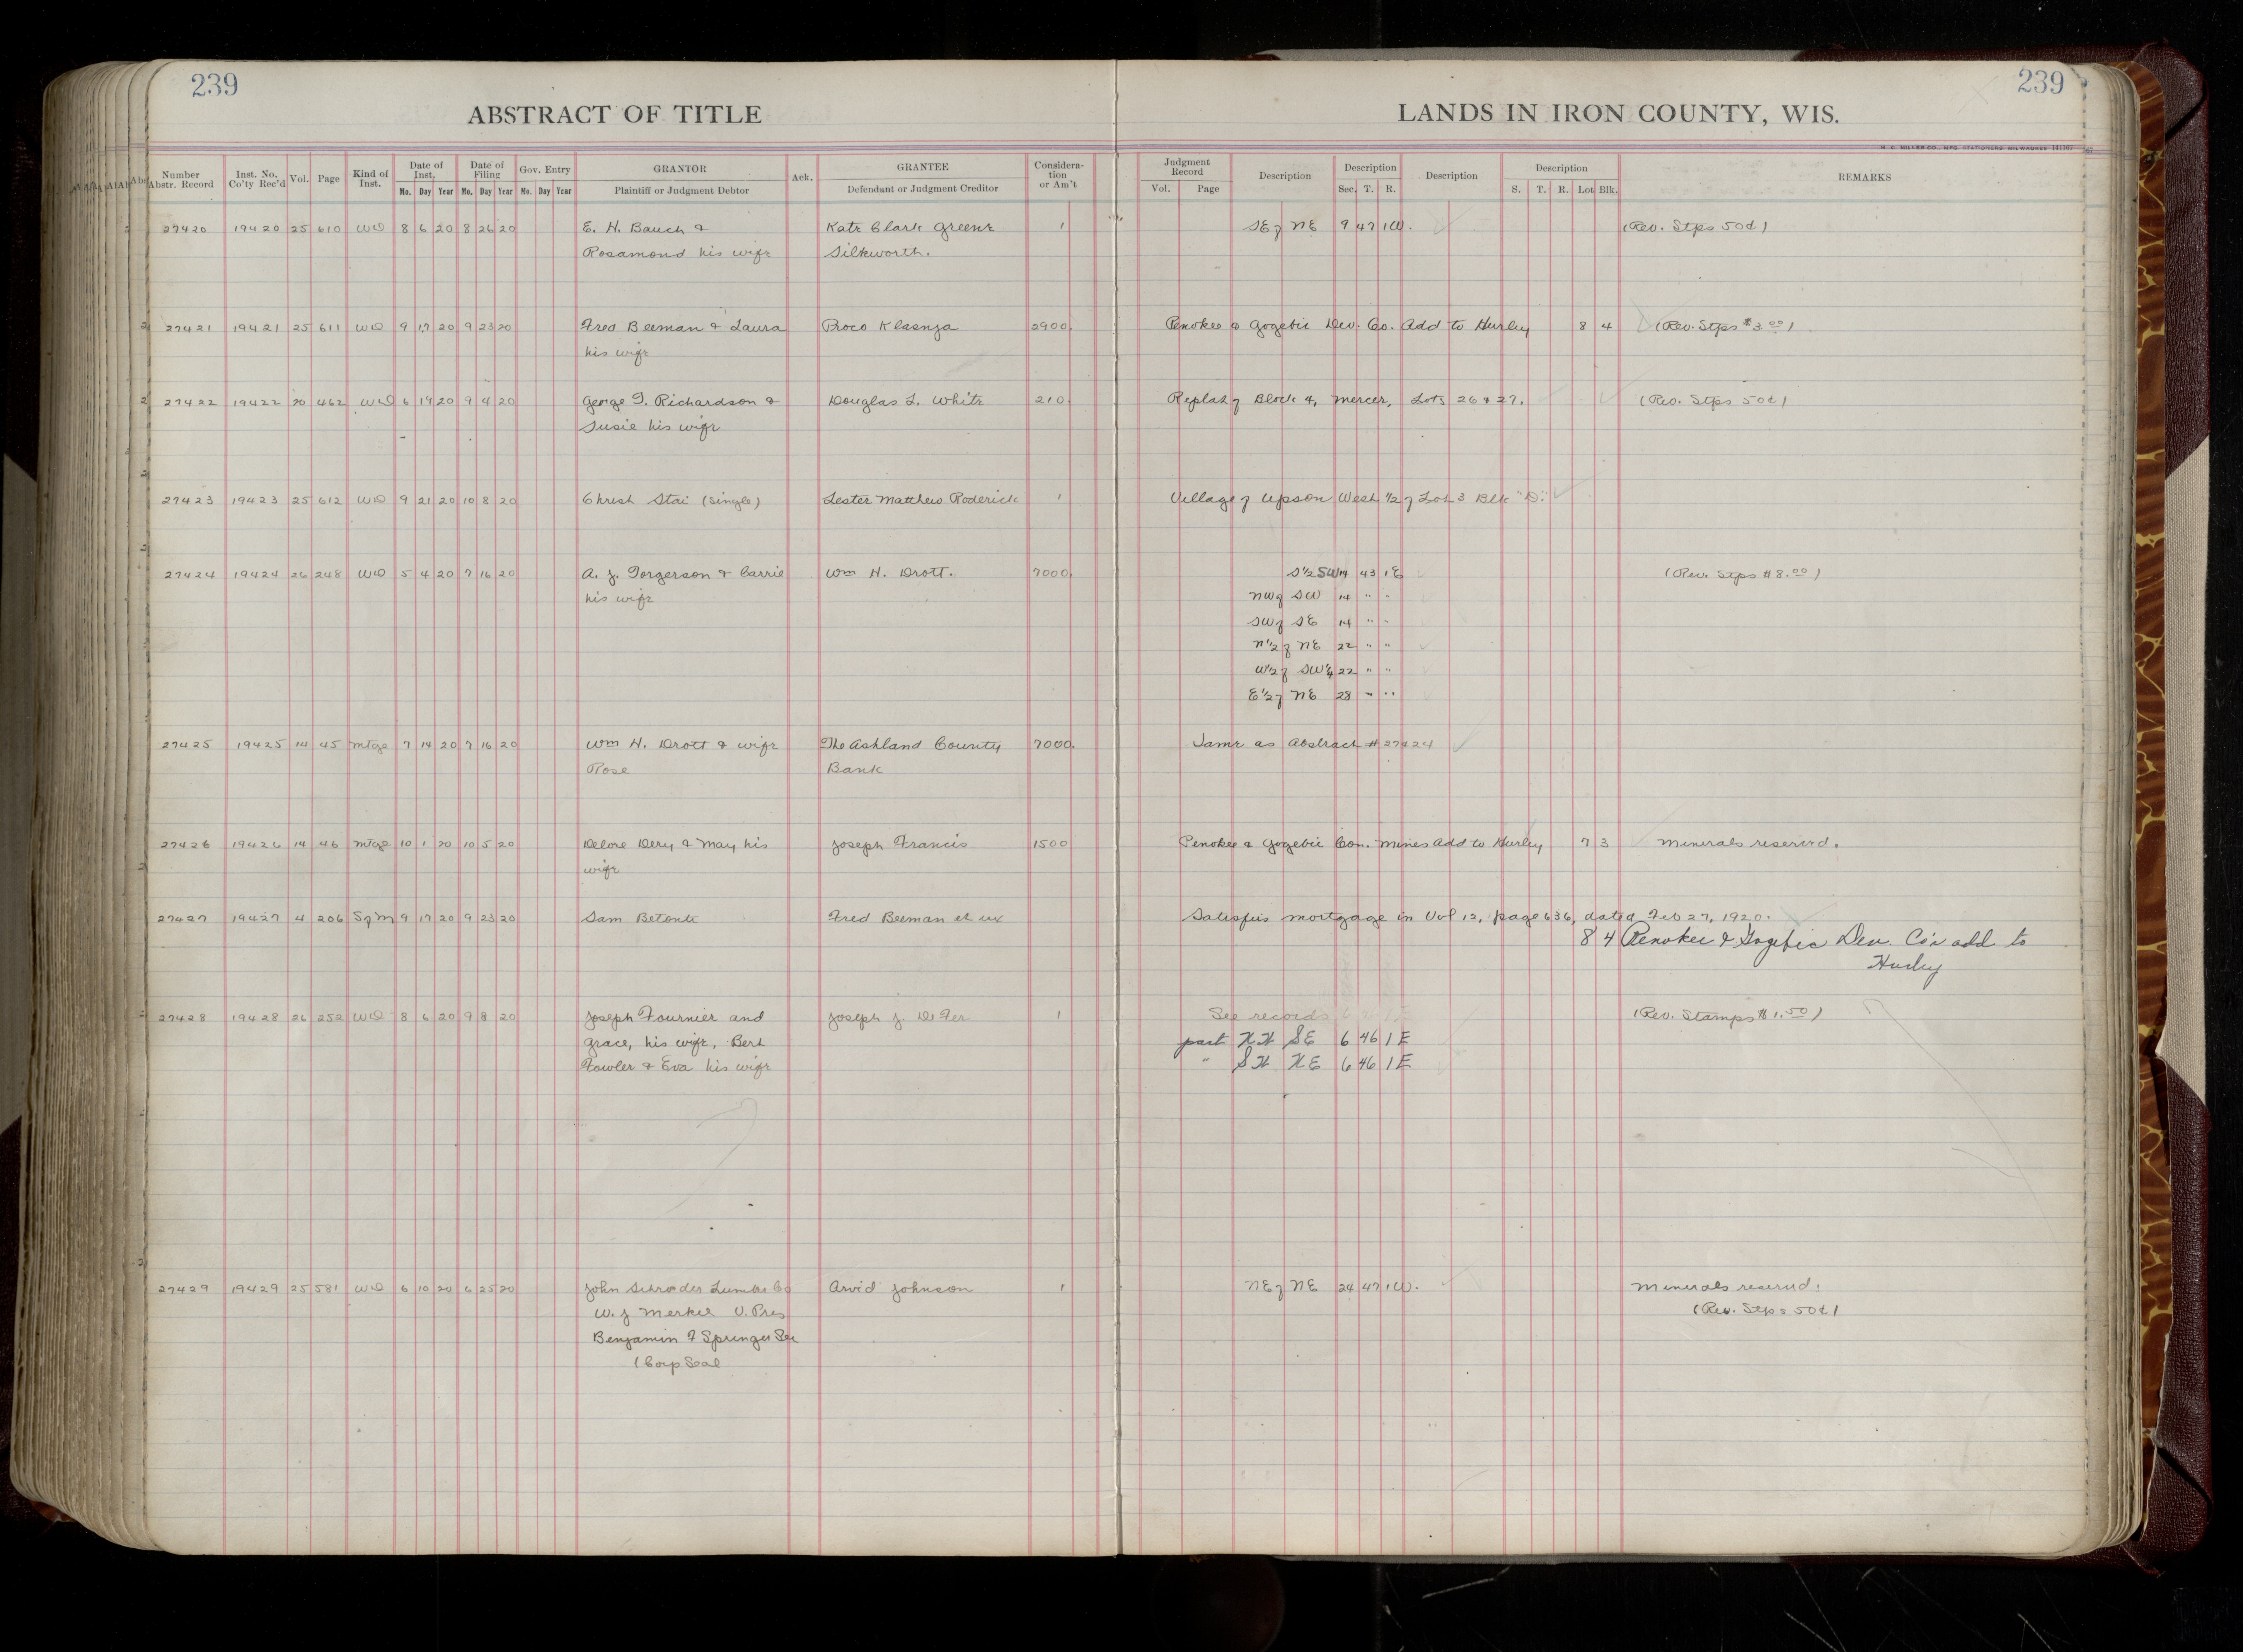 239
239
ABSTRACT OF TITLE
LANDS IN IRON COUNTY, WIS.
Number Abstr. Record | Inst. No. Co'ty Rec'd | Vol. | Page | Kind of Inst. | Date of Inst. Mo. Day Year | Date of Filing Mo. Day Year | Gov. Entry Mo. Day Year | GRANTOR Plaintiff or Judgment Debtor | Ack. | GRANTEE Defendant or Judgment Creditor | Considera-tion or Am't | Judgment Record Vol. Page | Description | Description Sec. T. R. | Description | Description S. T. R. Lot Blk. | REMARKS
27420 19420 25 610 WD 8 6 20 8 26 20 E. H. Bauch & Kate Clark Greene 1 SE of NE 9 47 1W. (Rev. Stps 50¢)
Rosamond his wife Silkworth.
27421 19421 25 611 WD 9 17 20 9 23 20 Fred Beeman & Laura Proco Klasnja 2900 Penokee & Gogebic Dev. Co. Add to Hurley 8 4 (Rev. Stps $3.00)
his wife
27422 19422 20 462 WD 6 19 20 9 4 20 George T. Richardson & Douglas L. White 210 Replat of Block 4, Mercer, Lots 26 & 27. (Rev. Stps 50¢)
Susie his wife
27423 19423 25 612 WD 9 21 20 10 8 20 Christ Stai (single) Lester Matthew Roderick 1 Village of Upson West 1/2 of Lot 3 Blk "D".
27424 19424 26 248 WD 5 4 20 7 16 20 A. J. Torgerson & Carrie Wm H. Drott. 7000. S1/2 SW 14 43 1E (Rev. Stps $8.00)
his wife NW of SW 14 " "
SW of SE 14 " "
N1/2 of NE 22 " "
W1/2 of SW1/4 22 " "
E1/2 of NE 28 " "
27425 19425 14 45 Mtge 7 14 20 7 16 20 Wm H. Drott & wife The Ashland County 7000. Same as Abstract #27424
Rose Bank
27426 19426 14 46 Mtge 10 1 20 10 5 20 Delore Dery & May his Joseph Francis 1500 Penokee & Gogebic Con. Mines Add to Hurley 7 3 Minerals reserved.
wife
27427 19427 4 206 S of M 9 17 20 9 23 20 Sam Betonte Fred Beeman et ux Satisfies mortgage in Vol 12, page 636, dated Feb 27, 1920.
8 4 Penokee & Gogebic Dev. Co's add to
Hurley
27428 19428 26 252 WD 8 6 20 9 8 20 Joseph Fournier and Joseph J. DeFer 1 See records (Rev. Stamps $1.50)
Grace, his wife, Bert part NW SE 6 46 1E
Fowler & Eva his wife " SW NE 6 46 1E
27429 19429 25 581 WD 6 10 20 6 25 20 John Schroeder Lumber Co Arvid Johnson 1 NE of NE 24 47 1W. Minerals reserved.
W. J Merkel V. Pres (Rev. Stps 50¢)
Benjamin F Springer Sec
(Corp Seal